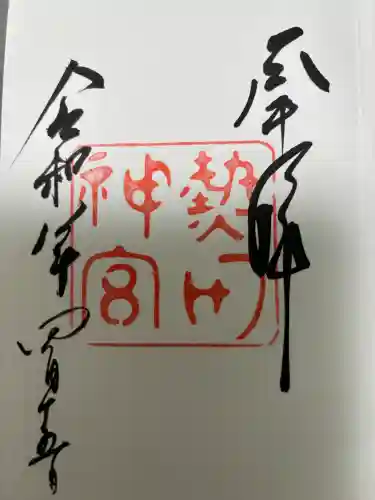 奉拝
熱田
神宮
令和年四月十五日